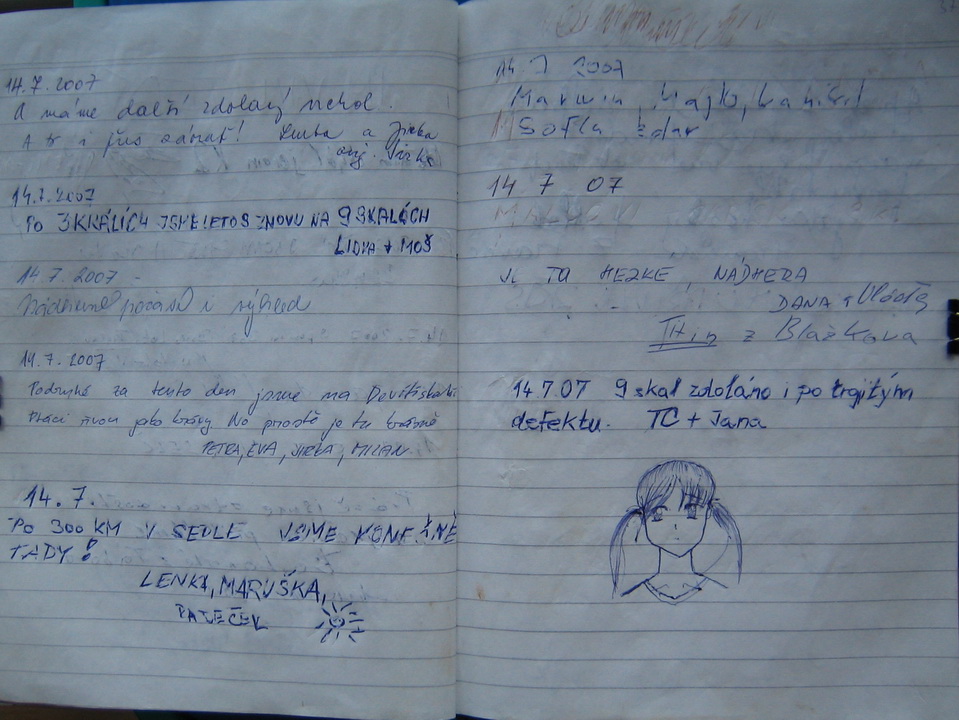 14.7.2007
A máme další zdolaný vrchol.
A to i přes závrať! Liuba a Jirka
14.7.2007
PO 3 KRÁLÍCH JSME LETOS ZNOVU NA 9 SKALÁCH
LIDKA + MOŠ
14.7.2007
Nádherné počasí i výhled
14.7.2007
Podruhé za tento den jsme na Devítiskalí.
jako krávy No prostě je tu krásně
PETRA, EVA, JIRKA, MILAN
14.7.
PO 300 KM V SEDLE JSME KONEČNĚ
TADY!
LENKA, MARUŠKA,
14 7 2007
Sofča
14 7 07
JE TU HEZKÉ, NÁDHERA
DANA + Vlåďa
z Blažkova
14.7.07 9 skal zdoláno i po trojitým
defektu. TC + Jana